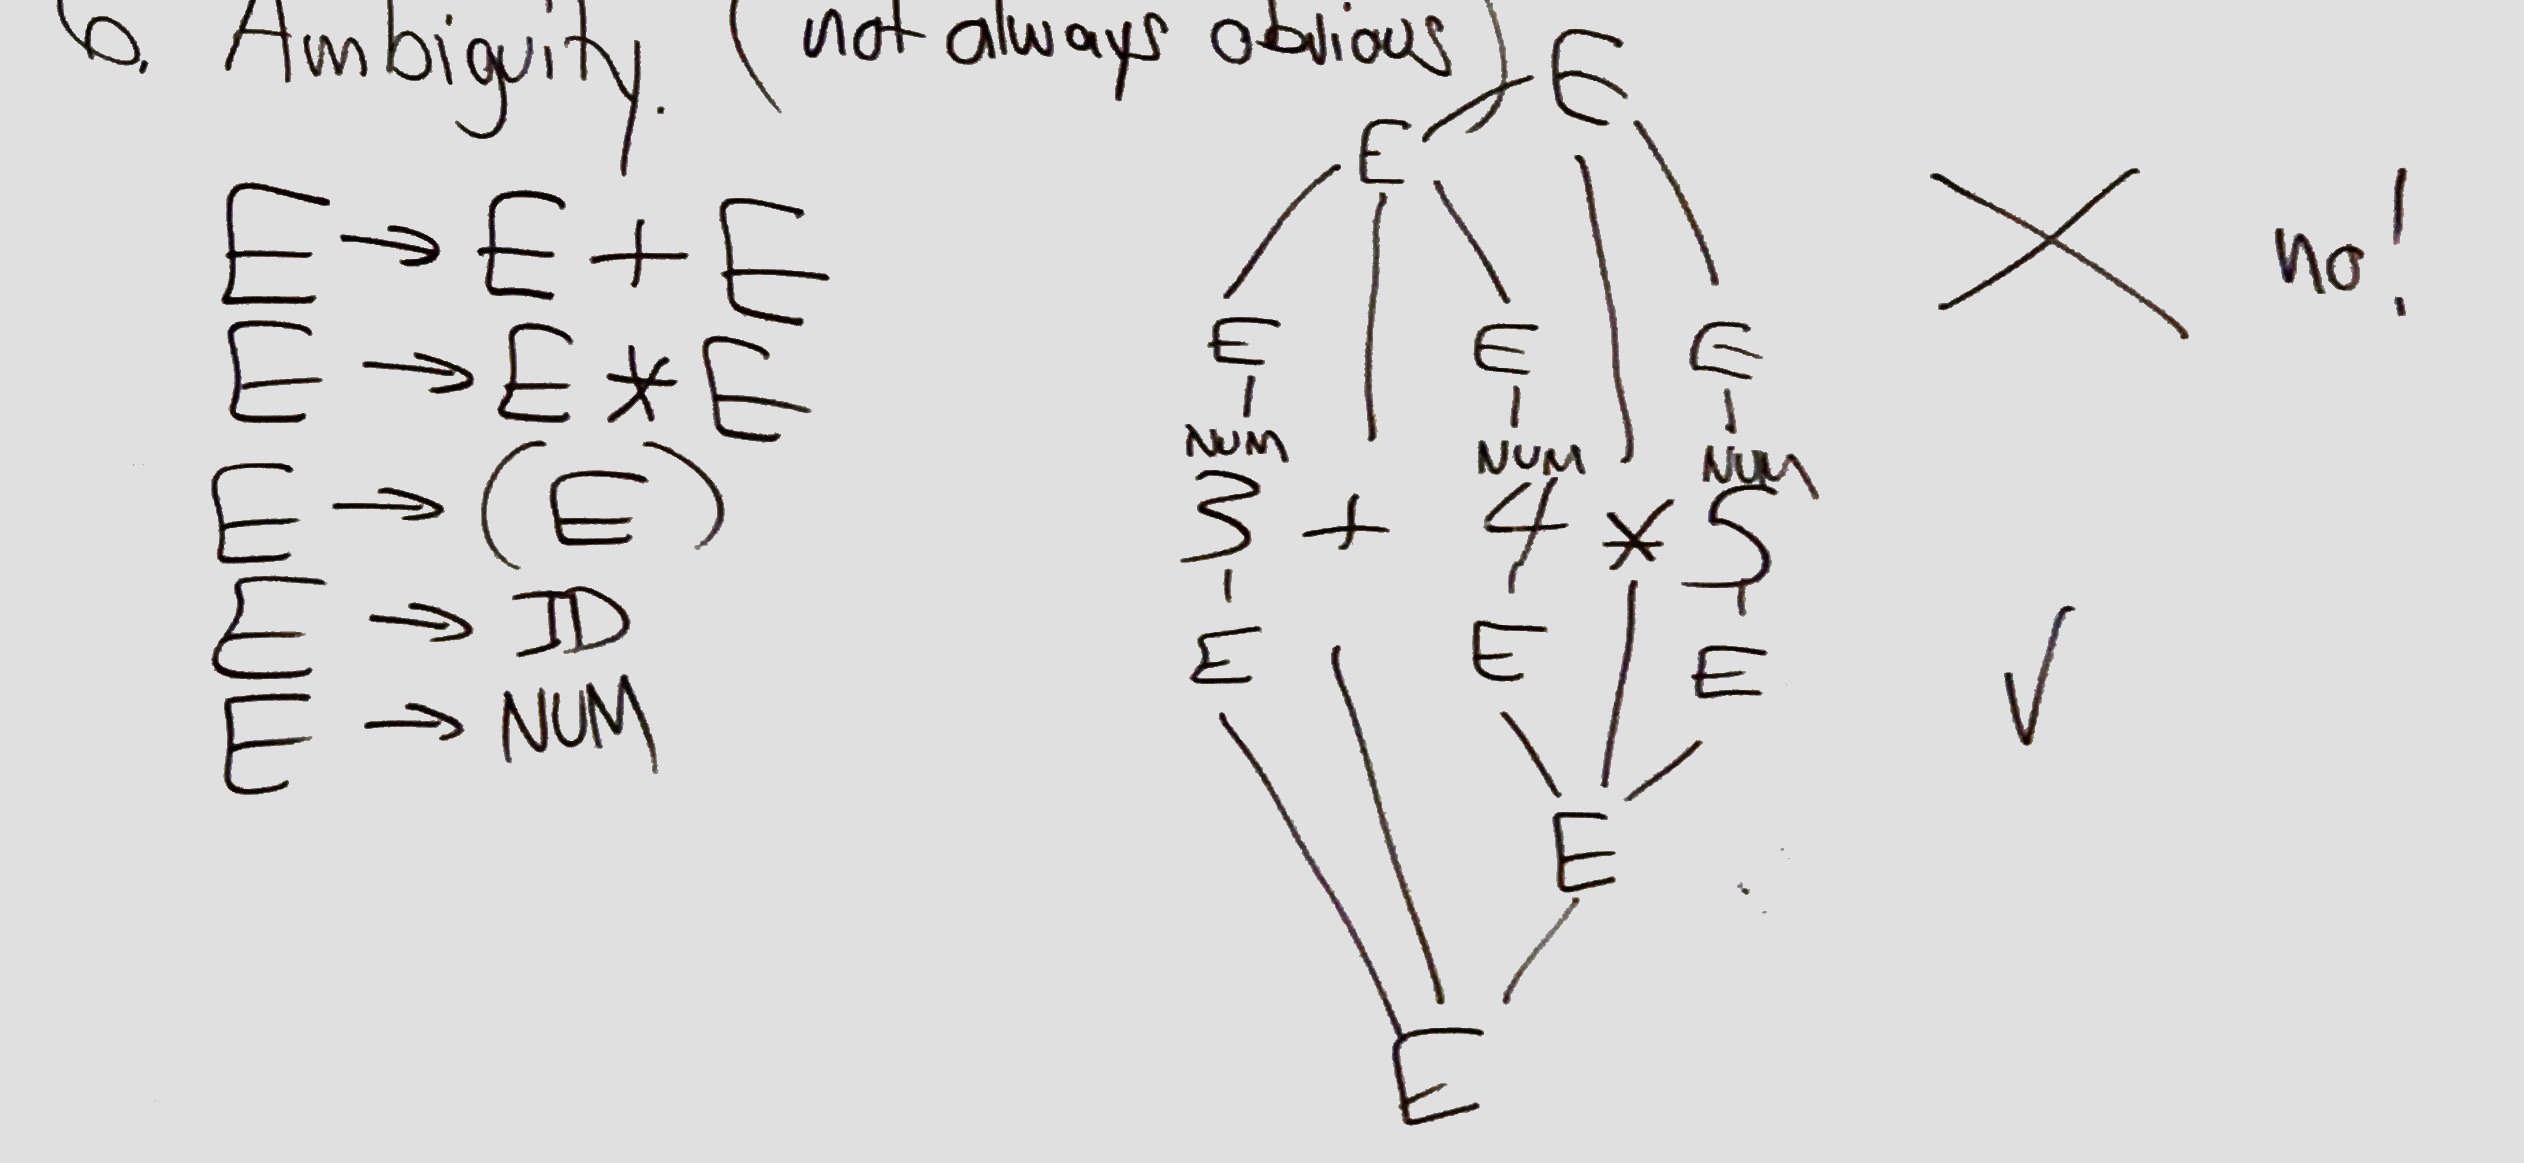 6. Ambiguity. (not always obvious)
E → E + E
E → E * E
E → (E)
E → ID
E → NUM
E
E
E E E
NUM NUM NUM
3 + 4 * 5
E E E
E
E
X no!
✓